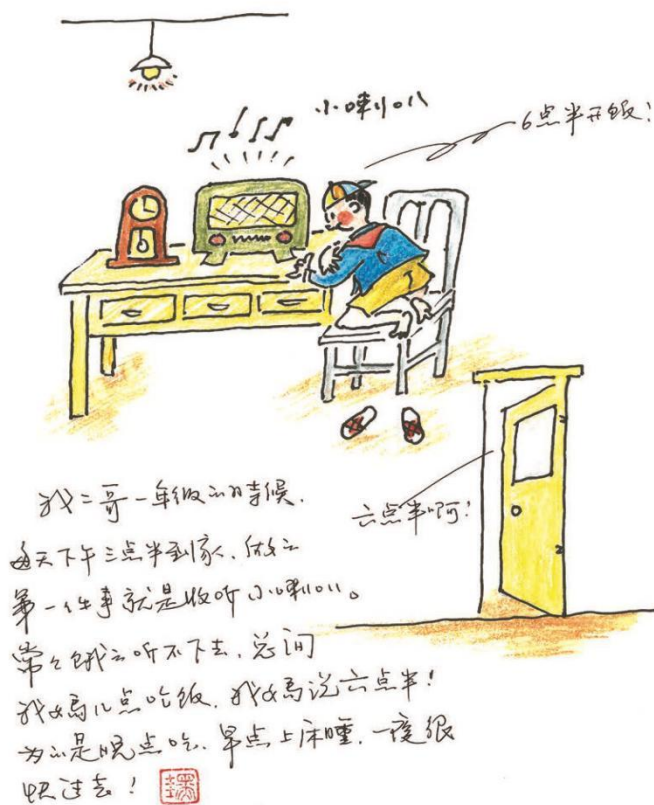 小喇叭
6点半开饭!
六点半啊!
我二哥一年级的时候.
每天下午三点半到家、做的
第一件事就是收听小喇叭。
常常饿的听不下去、总问
我妈几点吃饭、我妈说六点半!
为的是晚点吃、早点上床睡、一夜很
快过去!